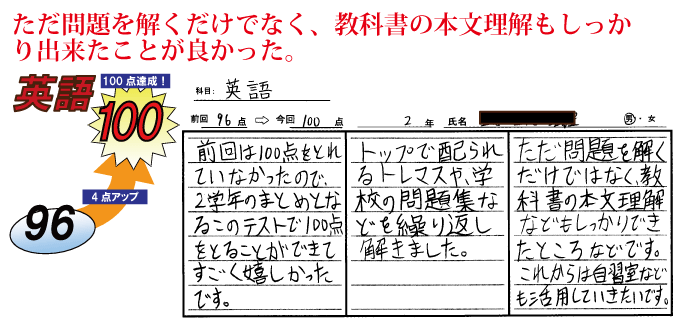 ただ問題を解くだけでなく、教科書の本文理解もしっか
り出来たことが良かった。
英語
100点達成!
100
4点アップ
96
科目: 英語
前回 96 点 ⇨ 今回 100 点 2 年 氏名 男・女
前回は100点をとれ
ていなかったので、
2学年のまとめとな
るこのテストで100点
をとることができて
すごく嬉しかった
です。
トップで配られ
るトレマスや、学
校の問題集な
どを繰り返し
解きました。
ただ問題を解く
だけではなく、教
科書の本文理解
などもしっかりでき
たところなどです。
これからは自習室なども
活用していきたいです。